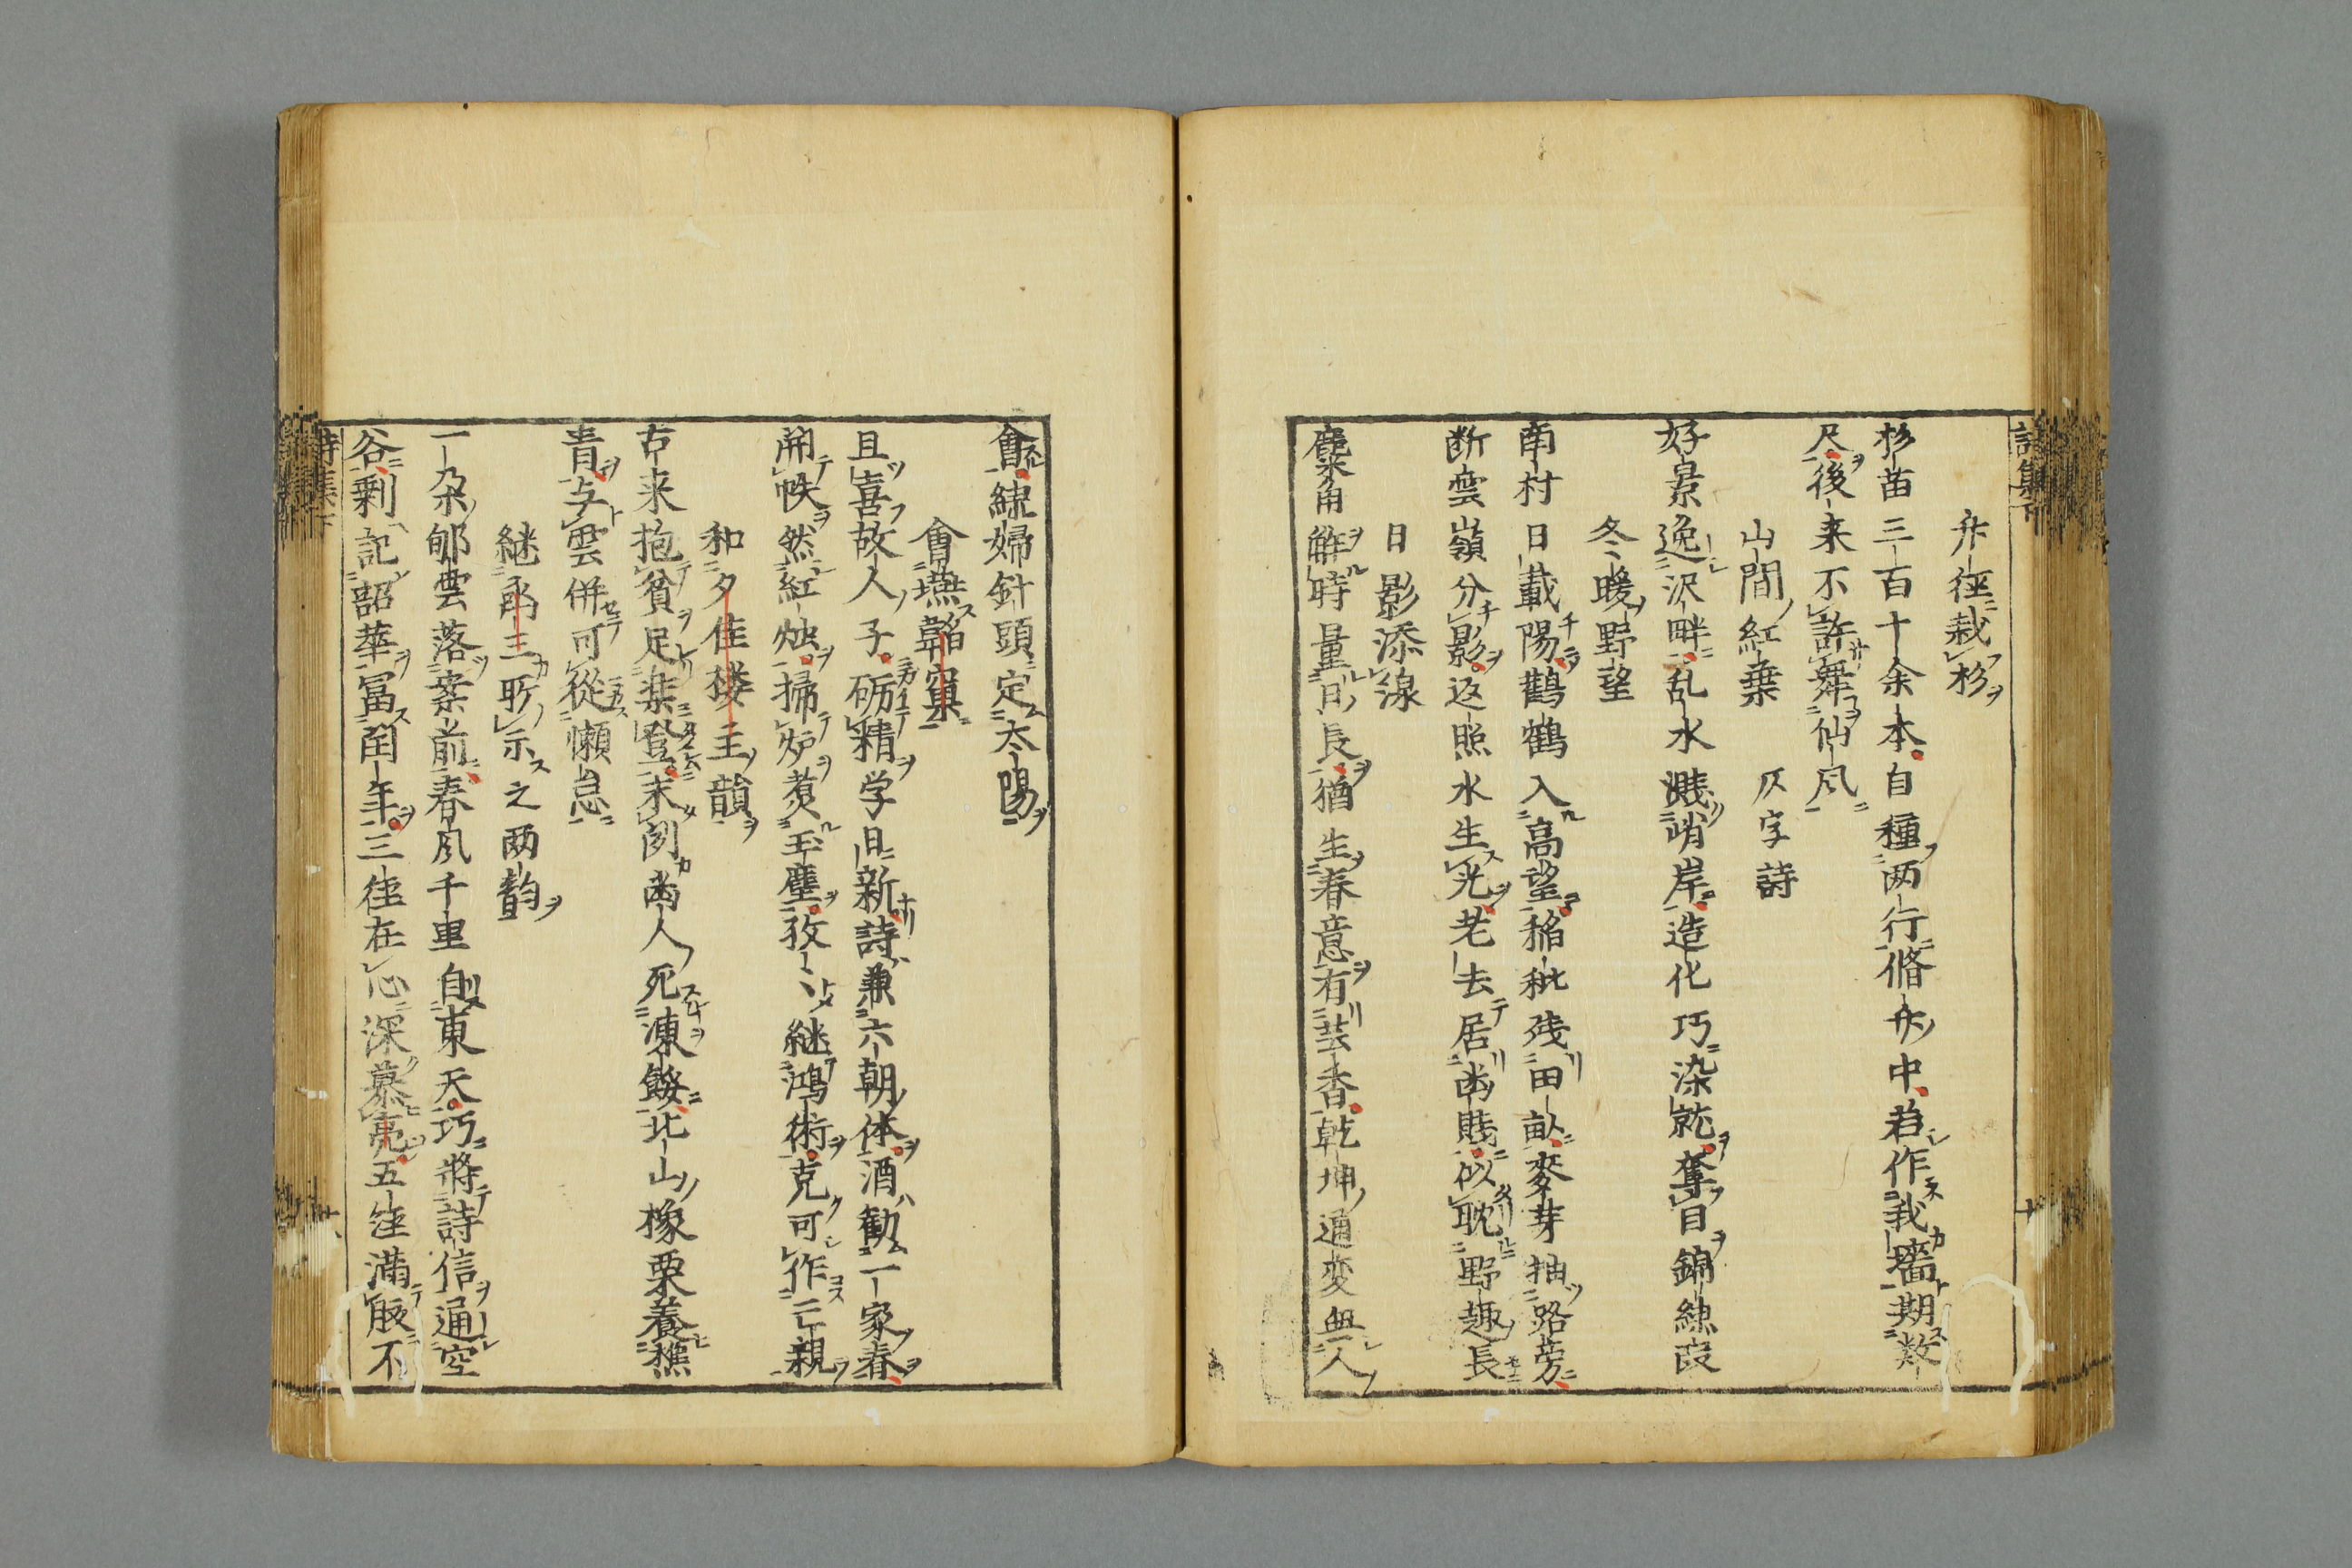 詩集下
舛徑栽杉
杉苗三百十余本自種两行脩舛中若作我牆期数
尺後来不許舞仙凨
山間紅葉 仄字詩
好景逸沢畔乱水濺峭岸造化巧染就奪目錦綉段
冬暖野望
南村日載陽鸛鶴入高望稲秕残田畝麥芽抽路旁
断雲嶺分影返照水生光老去居凾賤似耽野趣長
日影添線
麋角觧時量日長猶生春意有芸香乾坤通変無人
十
會綉婦針頭定太陽
會塘韜窠
且喜故人子砺精学日新詩兼六朝体酒勧一家春
開帙然紅烛掃炉煑玉塵孜〻継鴻術克可作三親
和夕佳楼主韻
古来抱貧足葉登末閃凾人死凍餒北山橡栗養樵
青与雲併可從懶怠
継凾三所示之两韵
一朶郇雲落案前春凨千里自東天巧將詩信通空
谷剰記韶華冨閏年三徑在心深慕亮五徃満服不
詩集下